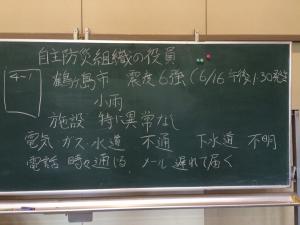 自主防災組織の役員
4-1
鶴ヶ島市 震度6強(6/16 午後1:30発生
小雨
施設 特に異常なし
電気 ガス 水道 不通 下水道 不明
電話 時々通じる メール 遅れて届く